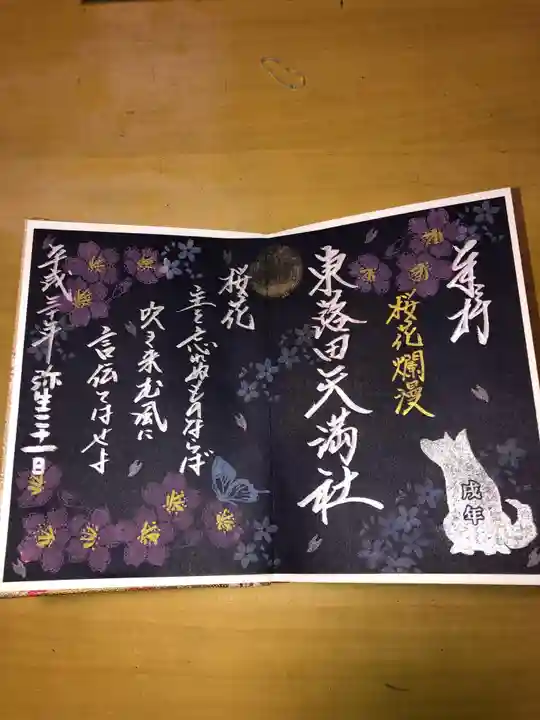 奉拝
桜花爛漫
東落田天満社
戌年
桜花
主を忘れぬものならば
吹き来む風に
言伝てはせよ
平成三十年弥生二十一日